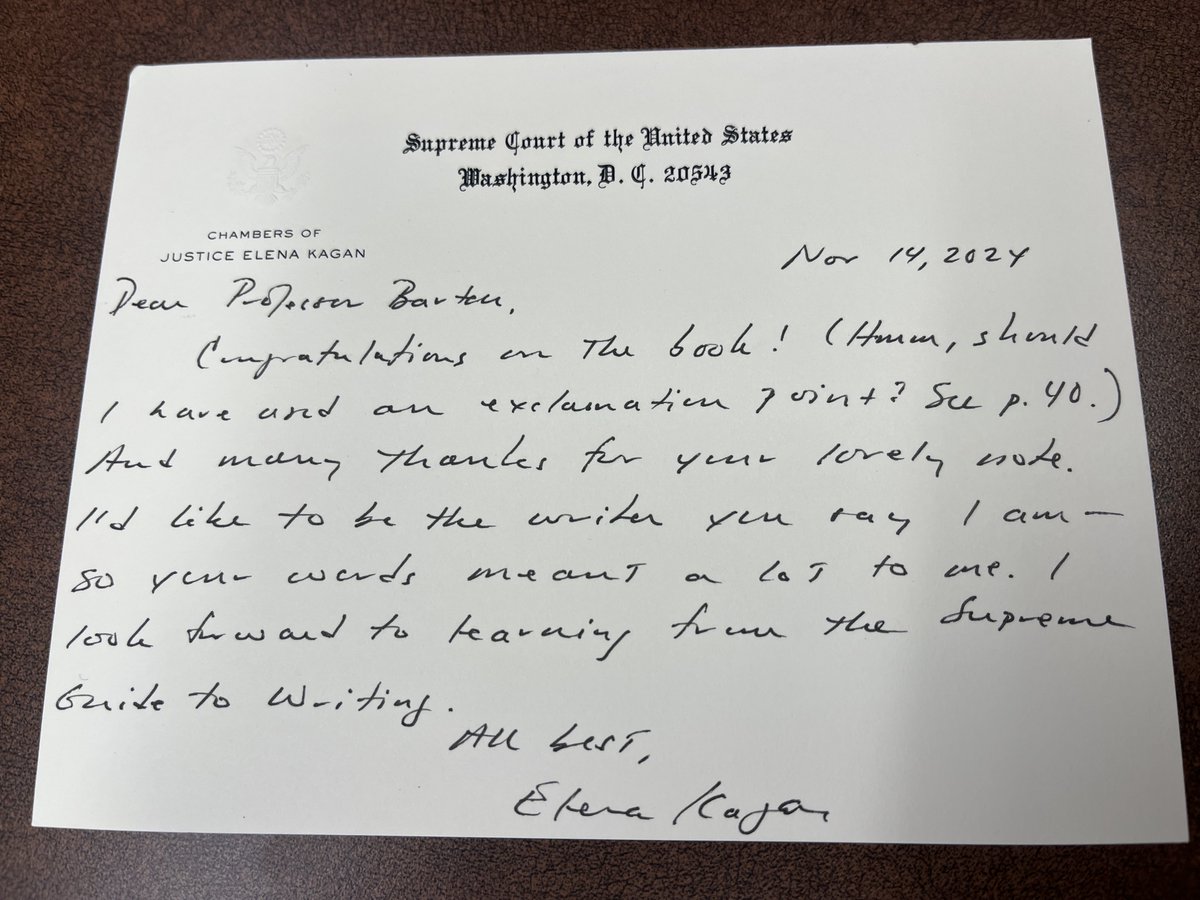 Supreme Court of the United States
Washington, D. C. 20543
CHAMBERS OF
JUSTICE ELENA KAGAN
Nov 14, 2024
Dear Professor Barton,
Congratulations on the book! (Hmm, should
I have used an exclamation point? See p. 40.)
And many thanks for your lovely note.
I'd like to be the writer you say I am—
so your words meant a lot to me. I
look forward to learning from the Supreme
Guide to Writing.
All best,
Elena Kagan